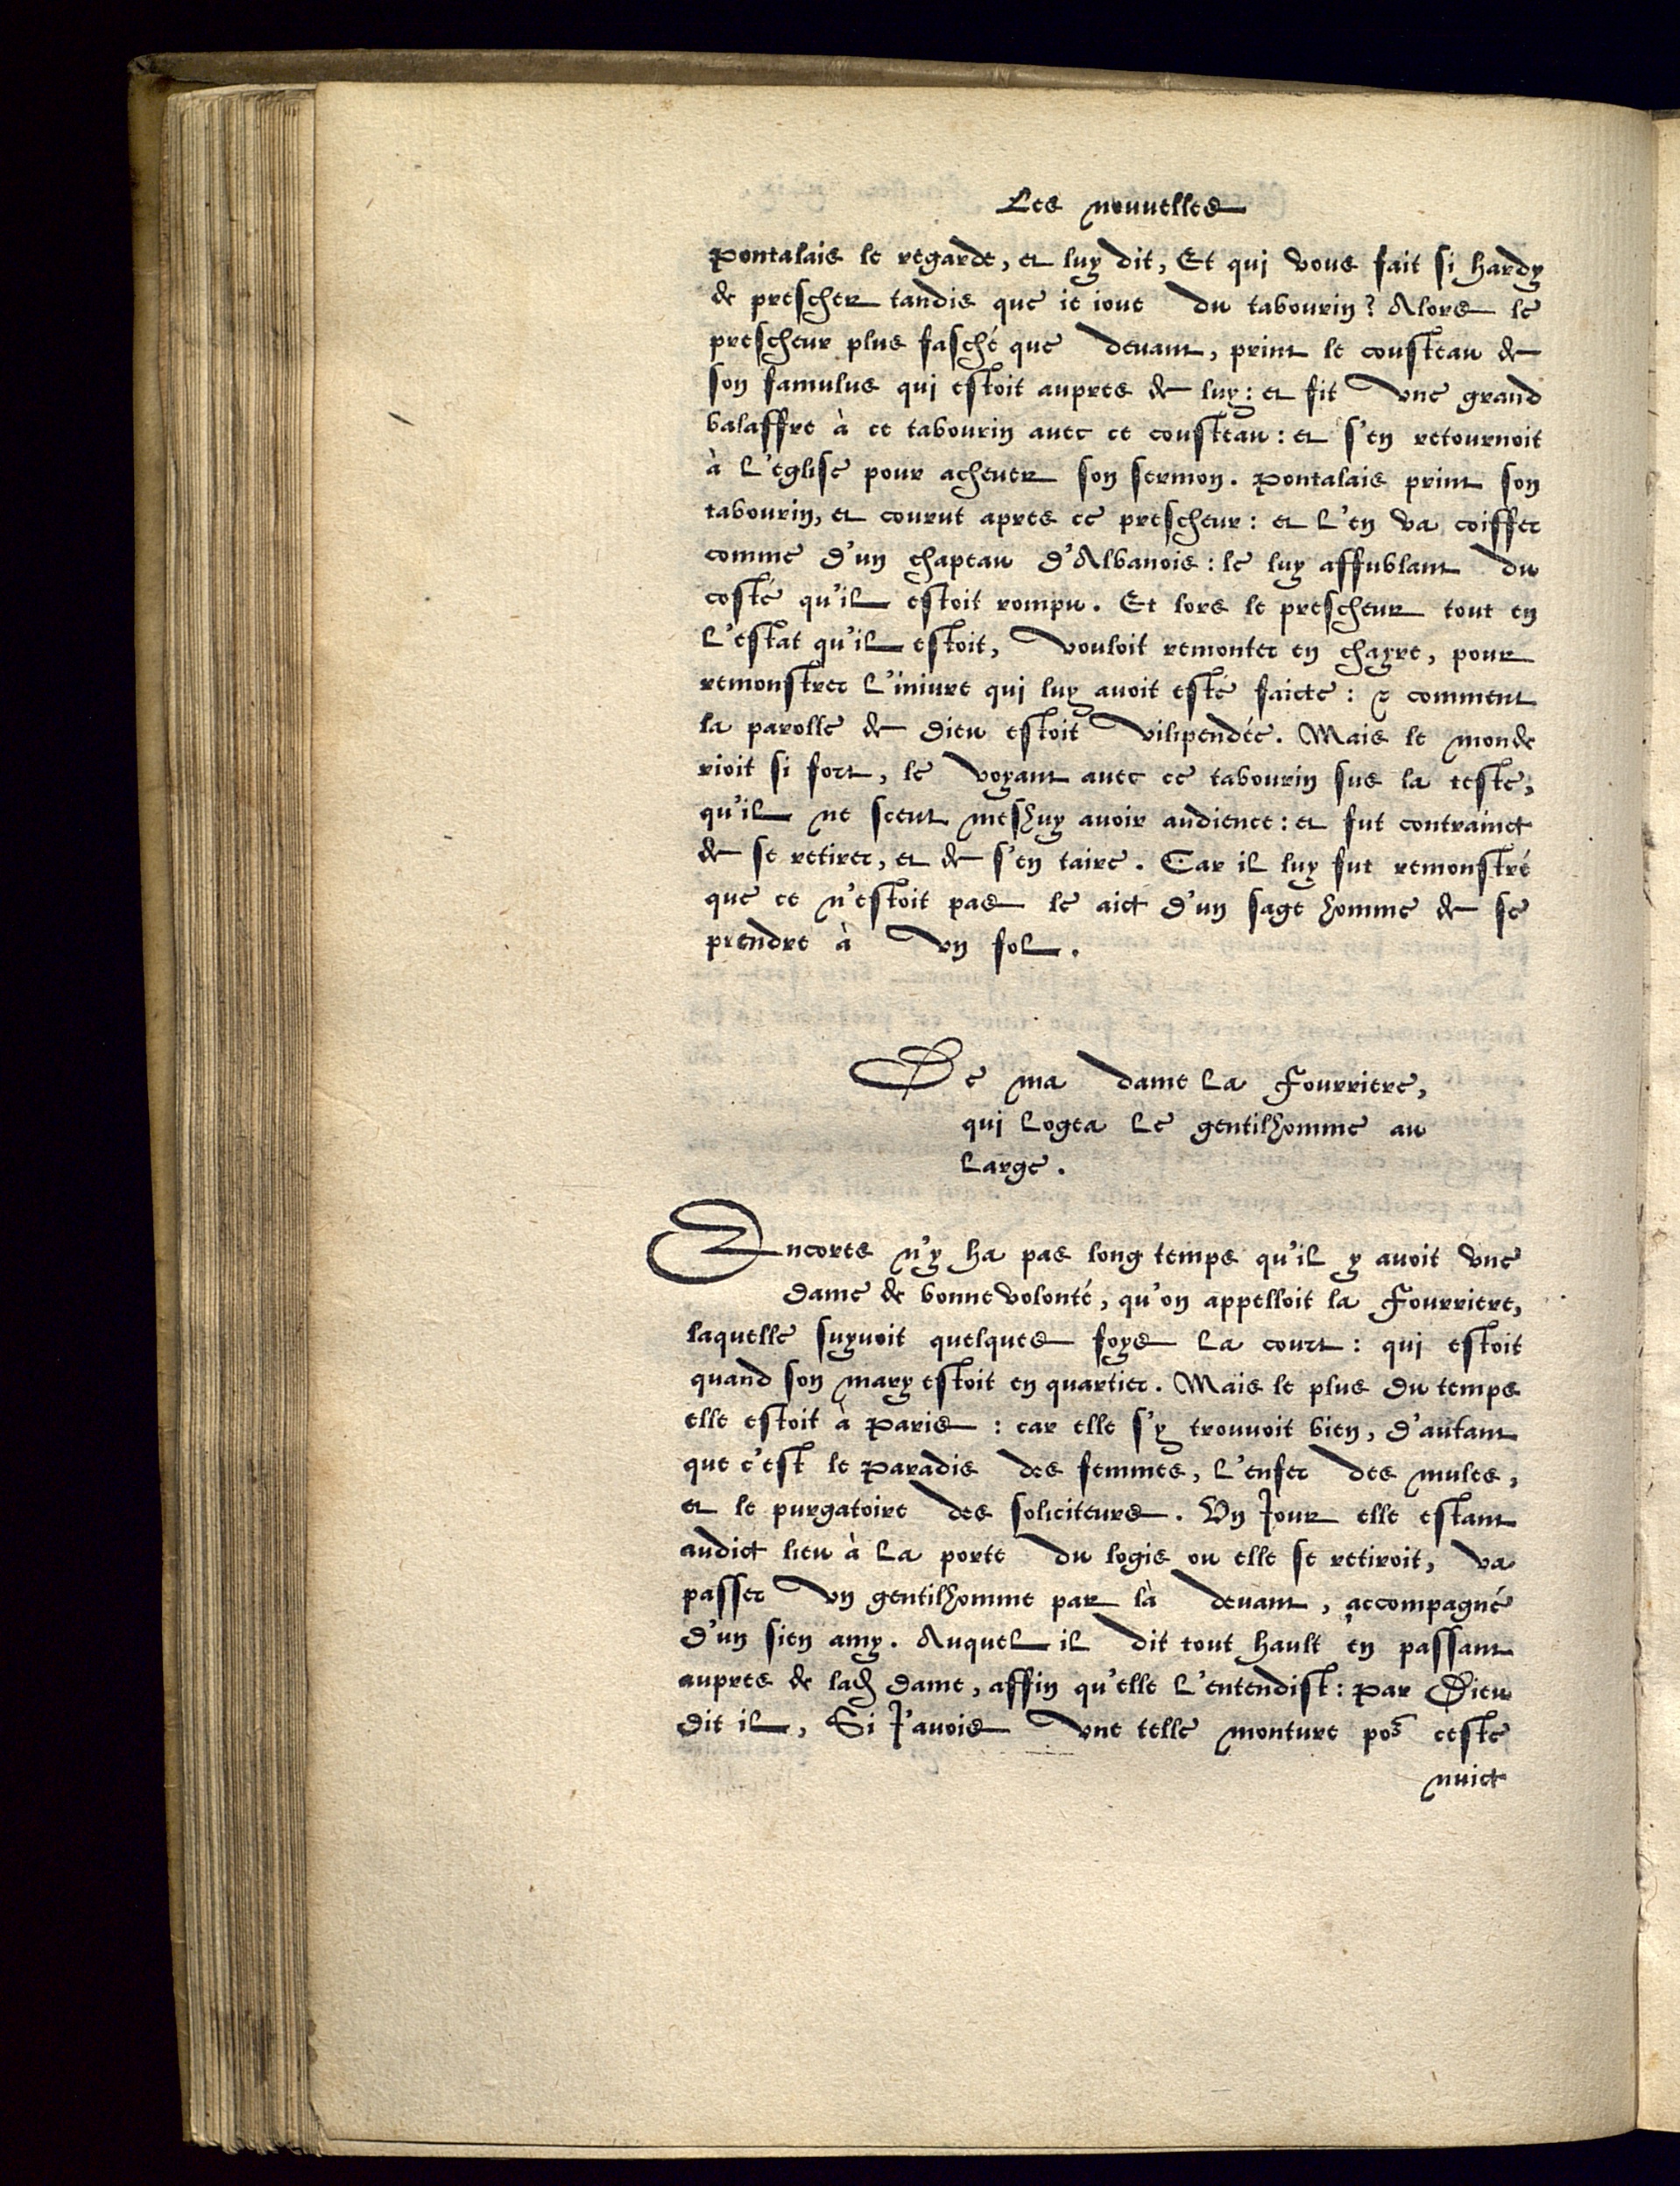 Les nouuelles
Pontalais le regarde, et luy dit, Et qui vous fait si hardy
de prescher tandis que ie ioue du tabourin? Alors le
prescheur plus fasché que deuant, print le cousteau de
son famulus qui estoit aupres de luy: et fit vne grand
balaffre à ce tabourin auec ce cousteau: et s'en retournoit
à l'eglise pour acheuer son sermon. Pontalais print son
tabourin, et courut apres ce prescheur: et l'en va coiffer
comme d'un chapeau d'Albanois: le luy affublant du
costé qu'il estoit rompu. Et lors le prescheur tout en
l'estat qu'il estoit, vouloit remonter en chayre, pour
remonstrer l'iniure qui luy auoit esté faicte: & comment
la parolle de Dieu estoit vilipendée. Mais le monde
rioit si fort, le voyant auec ce tabourin sus la teste,
qu'il ne sceut meshuy auoir audience: et fut contrainct
de se retirer, et de s'en taire. Car il luy fut remonstré
que ce n'estoit pas le aict d'un sage homme de se
prendre à vn fol.
De ma dame la Fourriere,
qui logea le gentilhomme au
large.
Encores n'y ha pas long temps qu'il y auoit vne
dame de bonne volonté, qu'on appelloit la Fourriere,
laquelle suyuoit quelques foys la court: qui estoit
quand son mary estoit en quartier. Mais le plus du temps
elle estoit à Paris: car elle s'y trouuoit bien, d'autant
que c'est le Paradis des femmes, l'enfer des mules,
et le purgatoire des soliciteurs. Vn Jour elle estant
audict lieu à la porte du logis ou elle se retiroit, va
passer vn gentilhomme par là deuant, accompagné
d'un sien amy. Auquel il dit tout hault en passant
aupres de lad dame, affin qu'elle l'entendist: Par Dieu
dit il, Si J'auois vne telle monture po͛ ceste
nuict